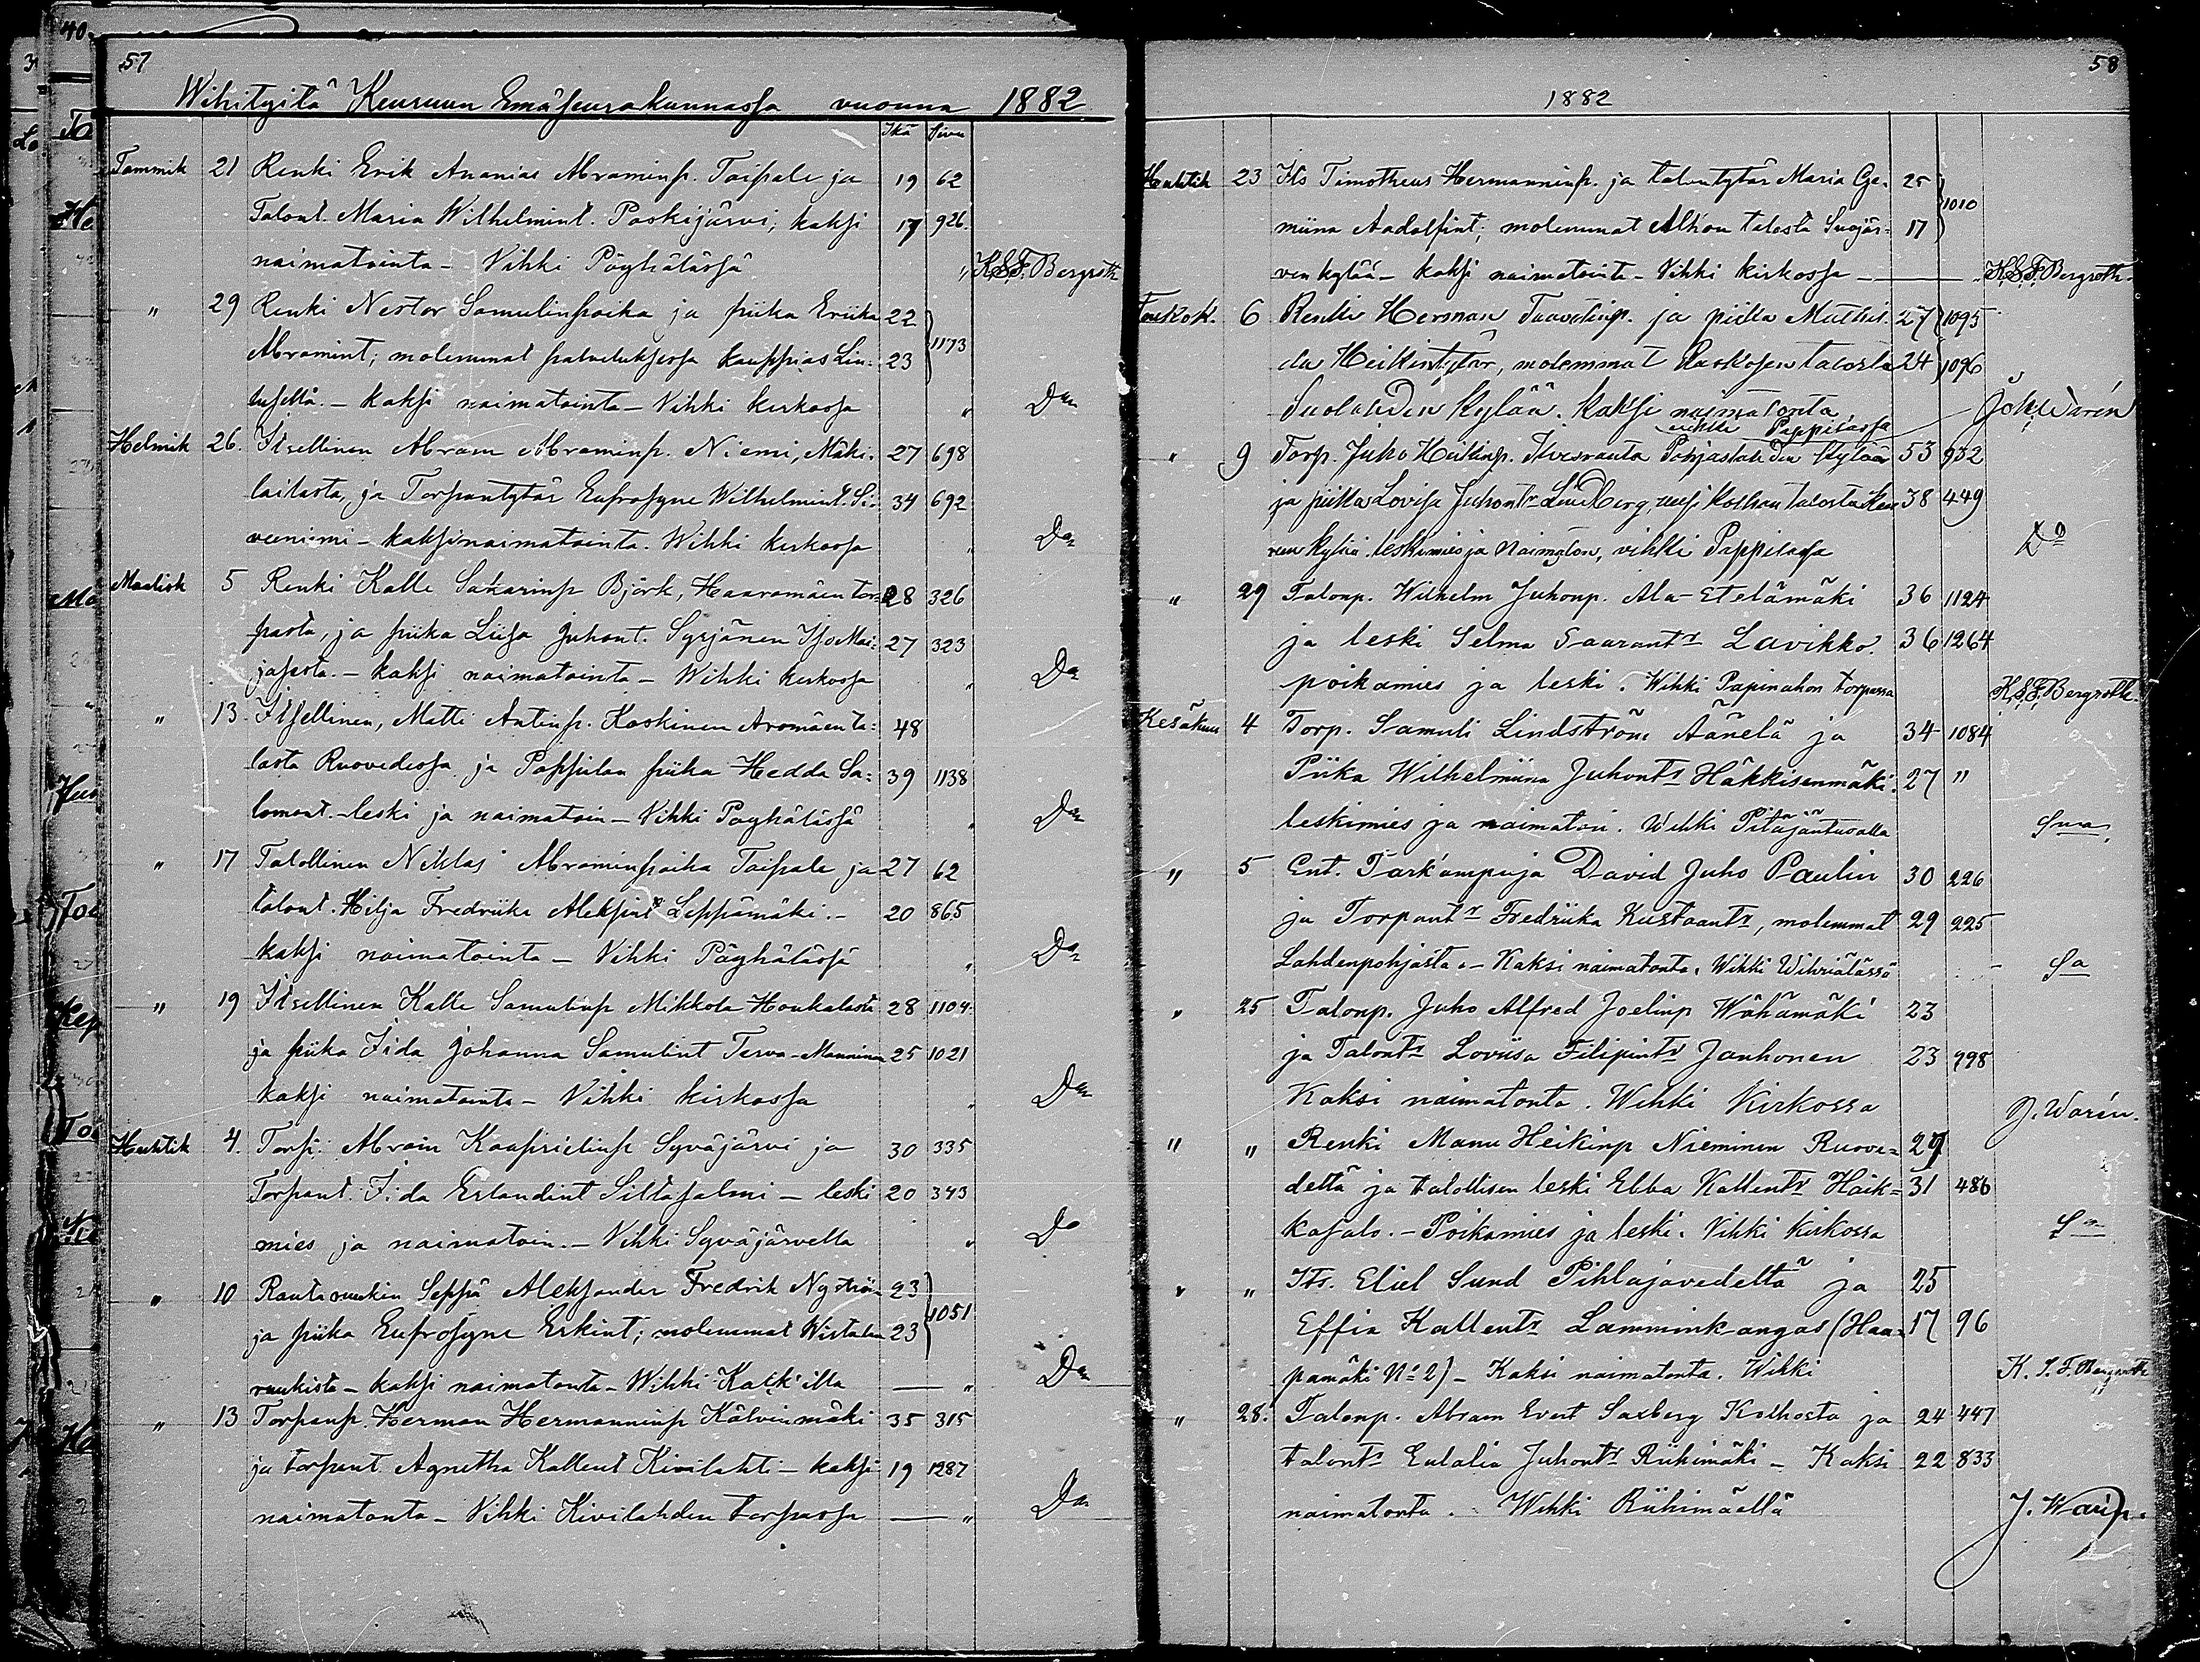 57
Wihityitä Keuruun Emäseurakunnassa vuonna 1882
Ikä Sivu
Tammik 21 Renki Erik Ananias Abraminp. Taipale ja 19 62
Talont. Maria Wilhelmint. Paskijärvi, kaksi 17 926.
naimatointa - Vihki Pöyhälässä " K.S.F. Bergroth
" 29 Renki Nestor Samulinpoika ja piika Eriika 22
Abramint; molemmat palveluksessa kauppias Lin- 23 1173
tusella. - kaksi naimatointa - Vihki kirkossa " Do
Helmik 26. Itsellinen Abram Abraminp. Niemi, Mäki- 27 698
laitasta, ja Torpantytär Eufrosyne Wilhelmint. Si- 34 692
veniemi - kaksi naimatointa. Wihki kirkossa " Do
Maalisk 5 Renki Kalle Sakarinp Björk, Haaramäen tor- 28 326
pasta, ja piika Liisa Juhont. Syrjänen 27 323
jasesta. - kaksi naimatointa - Wihki kirkossa " Do
" 13. Itsellinen, Matti Antinp. Koskinen Aromäen ta- 48
losta Ruovedessä ja Pappilan piika Hedda Sa- 39 1138
lomont. - leski ja naimatoin - Vihki Pöyhälässä " Do
" 17 Talollinen Niklas Abraminpoika Taipale ja 27 62
talont. Hilja Fredriika Aleksint Leppämäki. - 20 865
kaksi naimatointa - Vihki Pöyhälässä " Do
" 19 Itsellinen Kalle Samulinp Mikkola Houkalasta 28 1104
ja piika Iida Johanna Samulint Terva-Manninen 25 1021
kaksi naimatointa - Vihki kirkossa " Do
Huhtik 4. Torp. Abram Kaaprielinp Syväjärvi ja 30 335
Torpant. Iida Erlandint Siltasalmi - leski 20 343
mies ja naimatoin. - Vihki Syväjärvella " Do
" 10 Rautaruukin Seppä Aleksander Fredrik Nyström 23
ja piika Eufrosyne Erkint; molemmat 23 1051
ruukista - kaksi naimatonta - Wihki - " Do
" 13 Torpanp. Herman Hermanninp Kälvinmäki 35 315
ja torpant. Agnetha Kallent Kivilahti - kaksi 19 1287
naimatonta - Vihki Kivilahden torpassa - " Do
58
1882
Huhtik 23 Its Timotheus Hermanninp. ja talontytär Maria Ge- 25
miina Aadolfint; molemmat Alhon talosta Suojär- 17 1010
ven kylää - kaksi naimatointa - Vihki kirkossa - K.S.F. Bergroth
Toukok. 6 Renki Herman Taavetinp. ja piika Mathil- 27 1095
da Heikintytär, molemmat talosta 24 1096
Suolahden kylää. Kaksi naimatonta,
vihki Pappilassa Joh. Warén
" 9 Torp. Juho Heikinp. Pohjaslahden kylää 53 932
ja piika Lovisa Juhontr Lindberg, 38 449
ren kylää. leskimies ja naimaton, vihki Pappilassa Do
" 29 Talonp. Wilhelm Juhonp. Ala-Etelämäki 36 1124
ja leski Selma Saarantr Lavikko. 36 1264
poikamies ja leski. Wihki Papinahon torpassa K.S.F. Bergroth
Kesäkuu 4 Torp. Samuli Lindström Äänelä ja 34 1084
Piika Wilhelmiina Juhontr Häkkisenmäki. 27 "
leskimies ja naimaton. Wihki Pitäjäntuvalla Sma
" 5 Ent. Tark'ampuja David Juho Paulin 30 226
ja Torpantr Fredriika Kustaantr, molemmat 29 225
Lahdenpohjasta. - Kaksi naimatonta. Wihki Wihriälässä Sa
" 25 Talonp. Juho Alfred Joelinp Wähämäki 23
ja Talontr Loviisa Filipintr Janhonen 23 998
Kaksi naimatonta. Wihki Kirkossa J. Warén.
" " Renki Manu Heikinp Nieminen Ruove- 29
deltä ja talollisen leski Ebba Kallentr Haik- 31 486
kasalo. - Poikamies ja leski. Vihki Kirkossa Sa
" " Its. Eliel Sund Pihlajavedeltä ja 25
Effia Kallentr Lamminkangas (Haa- 17 96
pamäki No 2) - Kaksi naimatonta. Wihki K. S. F. Bergroth
" 28. Talonp. Abram Evert Saxberg Kolhosta ja 24 447
talontr Eulalia Juhontr Riihimäki - Kaksi 22 833
naimatonta. Wihki Riihimäellä J. Warén.